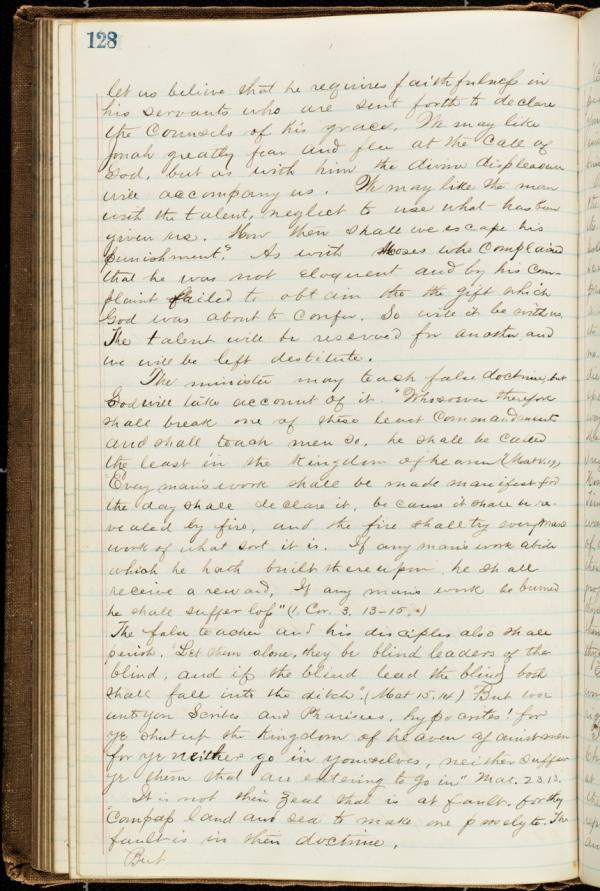 128
let us believe that he requires faithfulness in
his servants who are sent forth to declare
the Counsels of his grace. We may like
Jonah greatly fear and flee at the call of
God, but as with him the divine displeasure
will accompany us. We may like the man
with the talent, neglect to use what has been
given us. How then shall we escape his
punishment? As with Moses who complained
that he was not eloquent and by his com-
plaint failed to obtain the the gift which
God was about to confer. So will it be with us.
The talent will be reserved for another and
we will be left destitute.
The minister may teach false doctrine, but
God will take account of it. "Whosoever therefore
shall break one of these least commandments
and shall teach men so, he shall be called
the least in the Kingdom of heaven" (Mat V. 19)
Every man's work shall be made manifest for
the day shall declare it, because it shall be re-
vealed by fire, and the fire shall try every mans
work of what sort it is. If any man's work abide
which he hath built thereupon he shall
receive a reward, If any mans work be burned
he shall suffer loss" (1. Cor. 3. 13-15.)
The false teacher and his disciples also shall
perish. "Let them alone, they be blind leaders of the
blind, and if the blind lead the blind both
shall fall into the ditch". (Mat 15.14) But woe
unto you Scribes and Pharisees, hypocrites! for
ye shut up the Kingdom of heaven against men
for ye neither go in yourselves, neither suffer
ye them that are entering to go in" Mat. 23.13.
It is not their zeal that is at fault. for they
"Compass land and sea to make one proselyte. The
fault is in their doctrine.
But